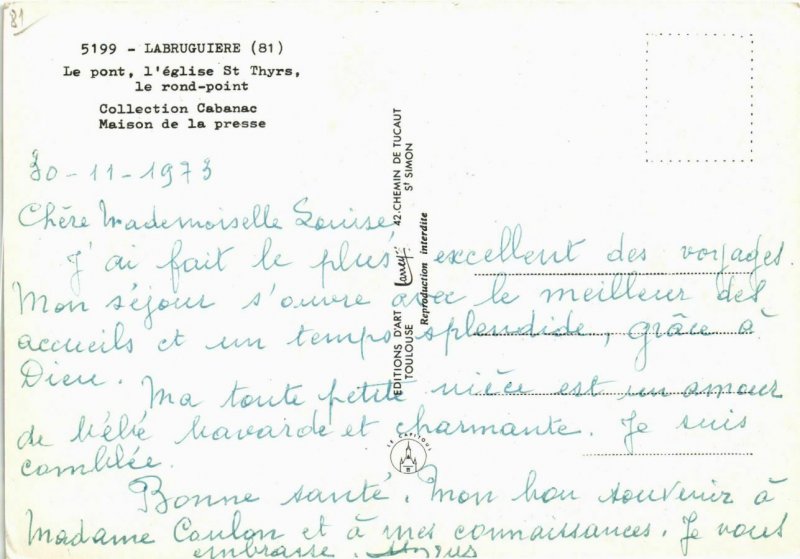 81
5199 - LABRUGUIERE (81)
Le pont, l'église St Thyrs,
le rond-point
Collection Cabanac
Maison de la presse
30-11-1973
Chère Mademoiselle Louise,
J'ai fait le plus excellent des voyages.
Mon séjour s'ouvre avec le meilleur des
accueils et un temps splendide, grâce à
Dieu. Ma toute petite nièce est un amour
de bébé bavarde et charmante. Je suis
comblée.
Bonne santé. Mon bon souvenir à
Madame Coulon et à mes connaissances. Je vous
embrasse.
EDITIONS D'ART Larrey
TOULOUSE
42, CHEMIN DE TUCAUT
St SIMON
Reproduction interdite
LE CAPITOUL